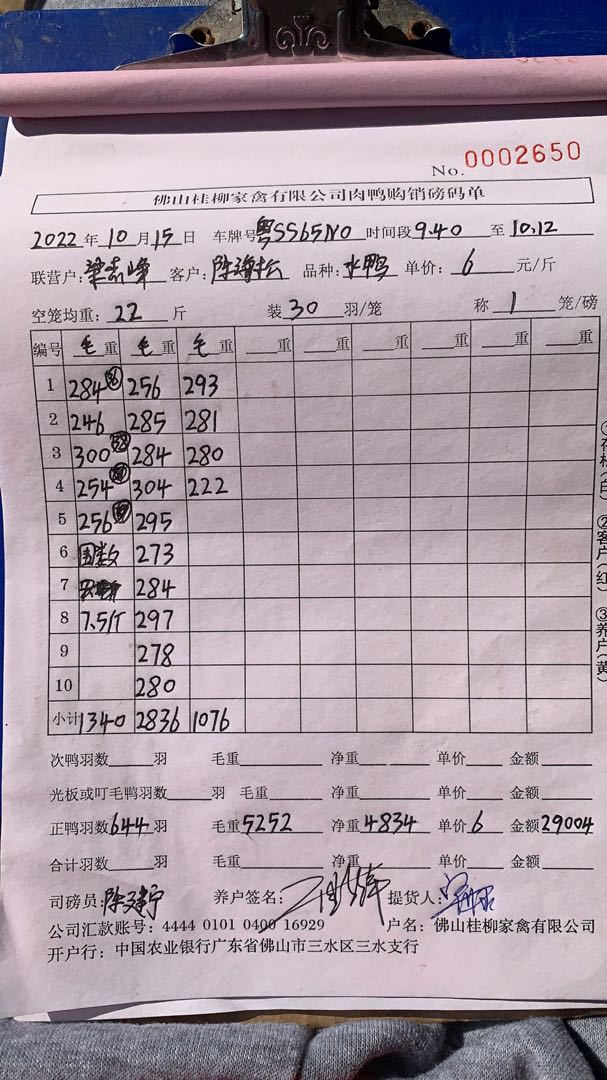 No. 0002650
佛山桂柳家禽有限公司肉鸭购销磅码单
2022年10月15日 车牌号粤SS65N0 时间段9.40至10.12
联营户: 梁志峰 客户: 陈海松 品种: 水鸭 单价: 6 元/斤
空笼均重: 22 斤 装30羽/笼 称1笼/磅
编号 毛重 毛重 毛重 重 重 重 重 重 重
1 284 256 293
2 246 285 281
3 300 284 280
4 254 304 222
5 256 295
6 273
7 284
8 7.5斤 297
9 278
10 280
小计 1340 2836 1076
次鸭羽数 羽 毛重 净重 单价 金额
光板或叮毛鸭羽数 羽 毛重 净重 单价 金额
正鸭羽数644羽 毛重5252 净重4834 单价6 金额29004
合计羽数 羽 毛重 净重 单价 金额
司磅员: 养户签名: 提货人:
公司汇款账号: 4444 0101 0400 16929 户名: 佛山桂柳家禽有限公司
开户行: 中国农业银行广东省佛山市三水区三水支行
(白) ②客户(红) ③养户(黄)